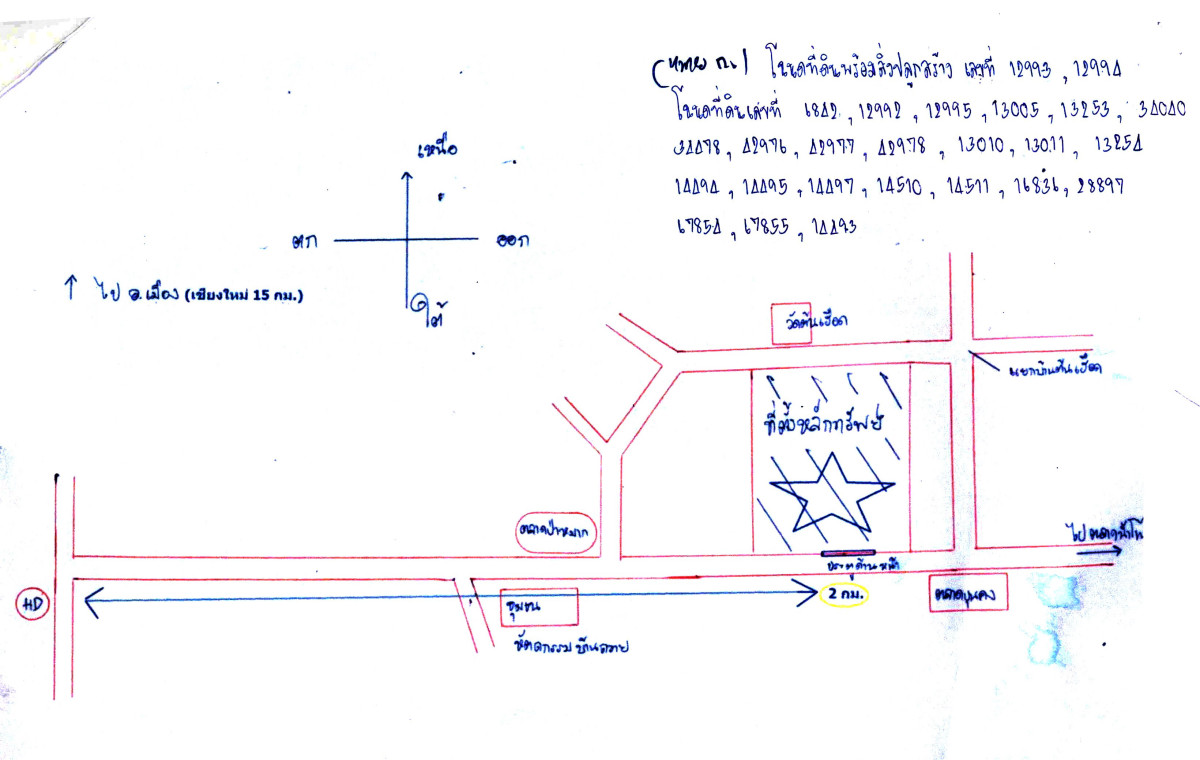 โฉนดที่ดินพร้อมสิ่งปลูกสร้าง เลขที่ 12993 , 12994
โฉนดที่ดินเลขที่ 6842 , 12992 , 12995 , 13005 , 13253 , 34040
34478 , 42976 , 42977 , 42978 , 13010 , 13011 , 13254
14494 , 14495 , 14497 , 14510 , 14511 , 16836 , 28897
67854 , 67855 , 14493
เหนือ
ตก
ออก
ใต้
↑ ไป อ.เมือง (เชียงใหม่ 15 กม.)
วัดต้นเฮือด
แยกบ้านต้นเฮือด
ที่ตั้งหลักทรัพย์
ตลาดป่าหมาก
ไป ตลาด
ประตูด้านหน้า
HD
2 กม.
ชุมชน
ตลาดขุนคง
หัตถกรรม บ้านถวาย